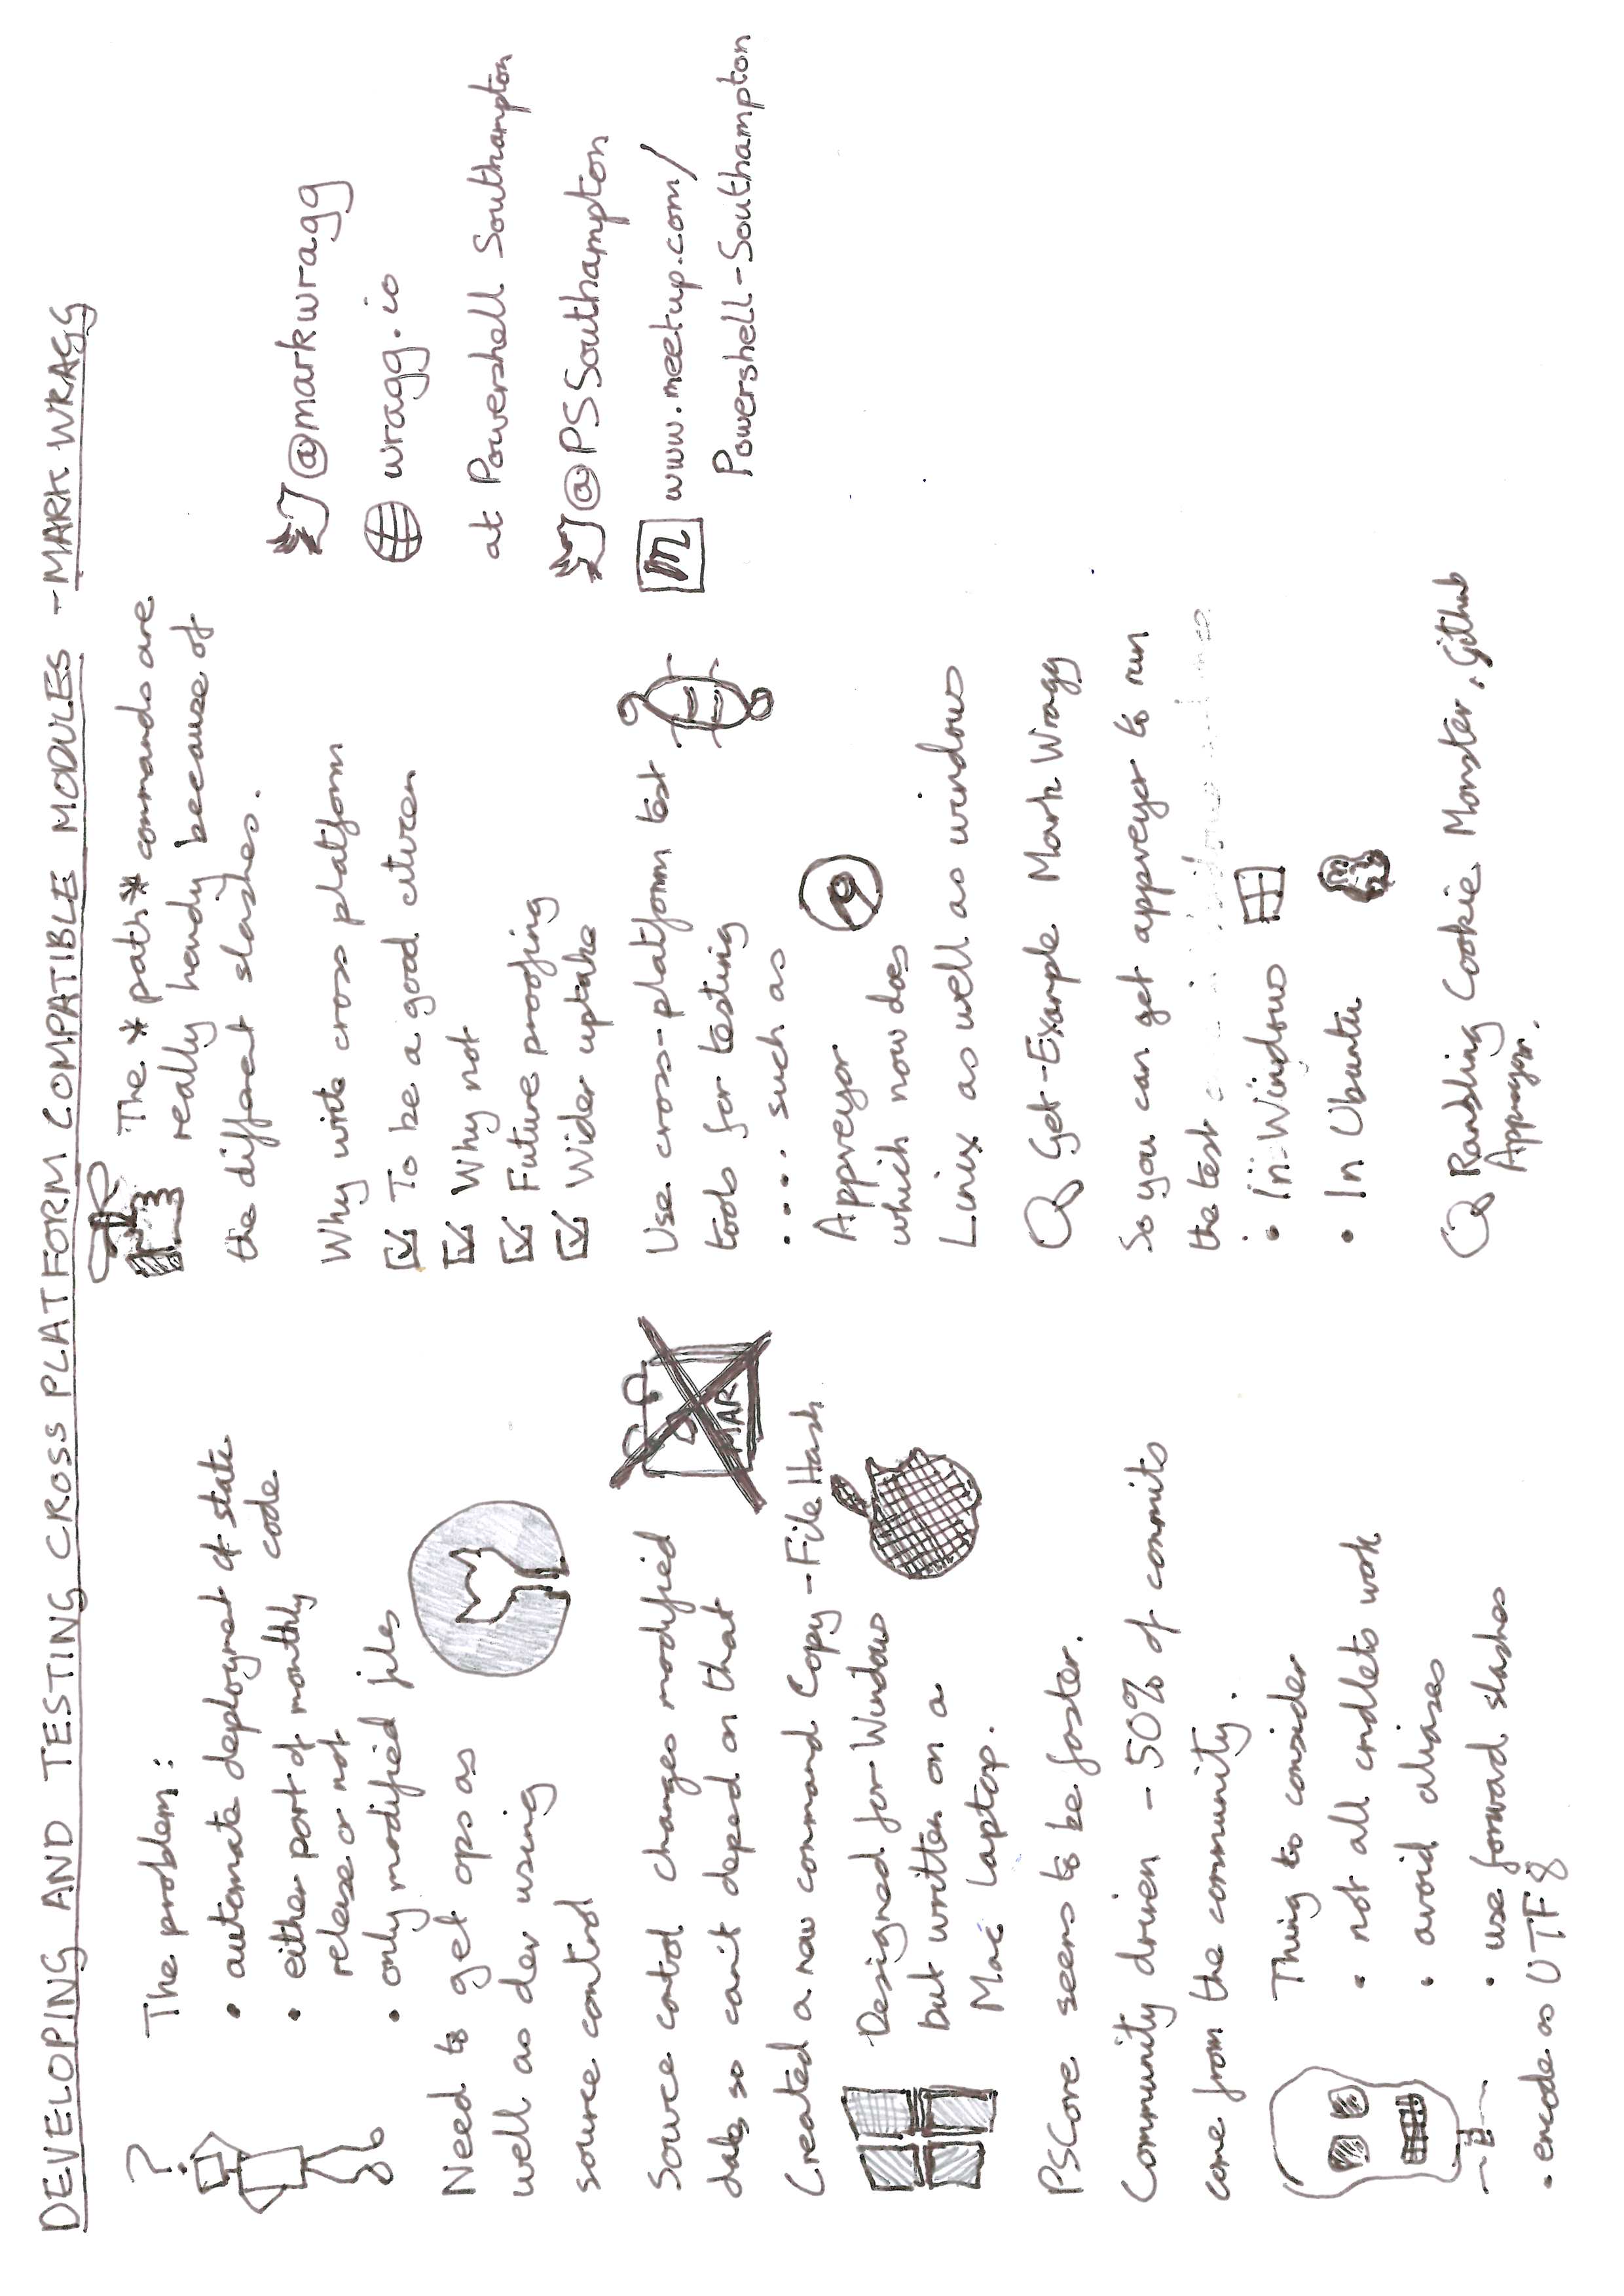 DEVELOPING AND TESTING CROSS PLATFORM COMPATIBLE MODULES - MARK WRAGG
?
The problem:
• automate deployment of state
code
• either part of monthly
release or not
• only modified files
Need to get ops as
well as dev using
source control
Source control changes modified
dates so can't depend on that
MAR
Created a new command Copy-FileHash
Designed for Windows
but written on a
Mac laptop.
PSCore seems to be faster.
Community driven - 50% of commits
come from the community.
Thing to consider
• not all cmdlets work
• avoid aliases
• use forward slashes
• encode as UTF8
The *path* commands are
really handy because of
the different slashes.
Why write cross platform
To be a good citizen
Why not
Future proofing
Wider uptake
Use cross-platform test
tools for testing
.... such as
Appveyor
which now does
Linix as well as windows
Get-Example Mark Wragg
So you can get appveyor to run
the test
• In Windows
• In Ubuntu
Rambling Cookie Monster, Github
Appveyor.
@markwragg
wragg.io
at Powershell Southampton
@PSSouthampton
m www.meetup.com/
Powershell-Southampton